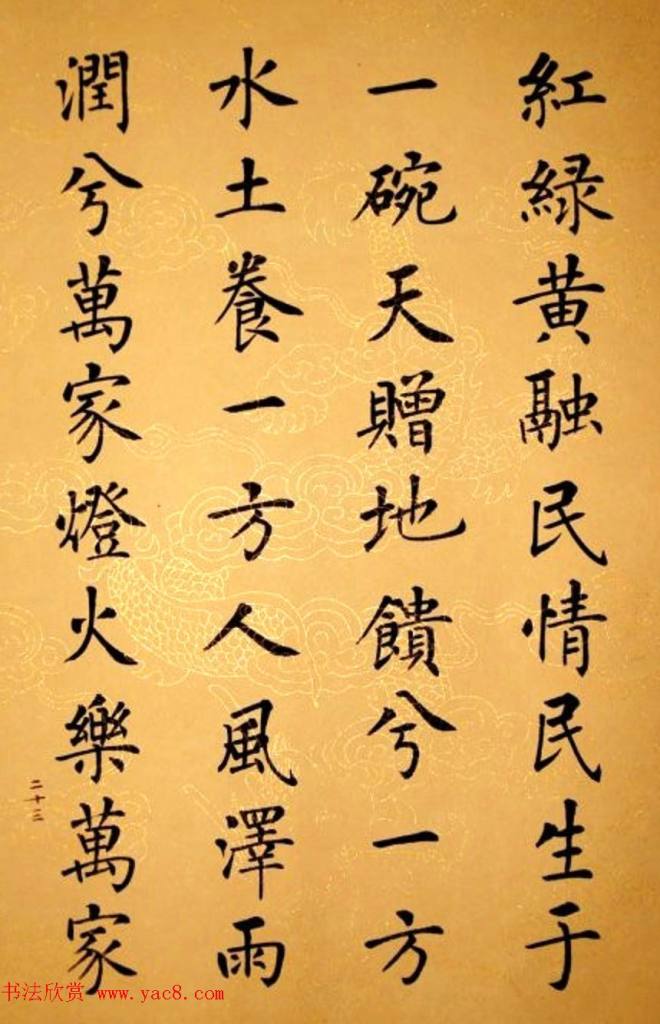 紅綠黄融民情民生于
一碗天贈地饋兮一方
水土養一方人風澤雨
潤兮萬家燈火樂萬家
二十三
书法欣赏 www.yac8.com